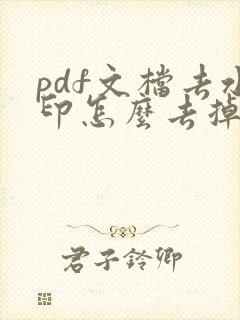 pdf文檔去水
印怎麼去掉
君子鈴卿